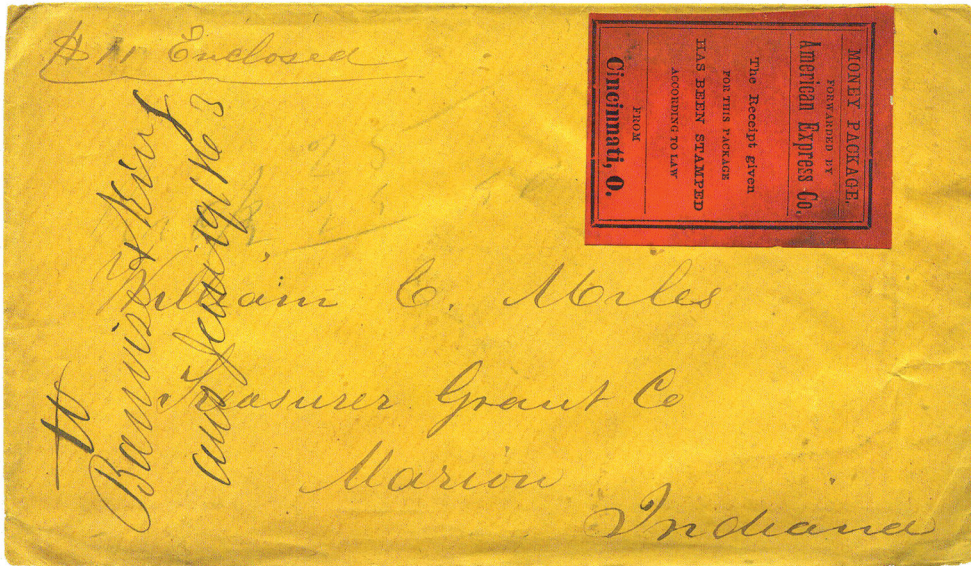 Enclosed
MONEY PACKAGE.
FORWARDED BY
American Express Co.
The Receipt given
FOR THIS PACKAGE
HAS BEEN STAMPED
ACCORDING TO LAW
FROM
Cincinnati, O.
William C. Miles
Treasurer Grant Co
Marion
Indiana
King